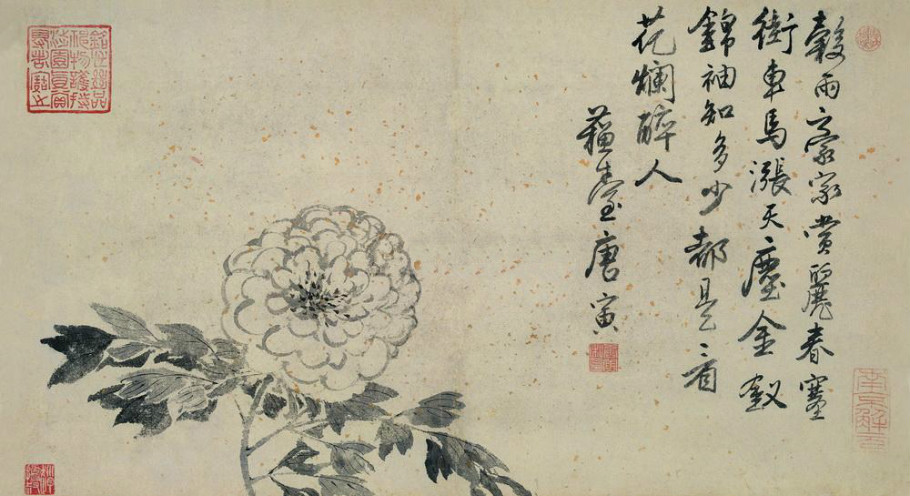 穀雨豪家賞麗春塞
街車馬漲天塵金釵
錦袖知多少都是看
花爛醉人
蘓臺唐寅
南京解元